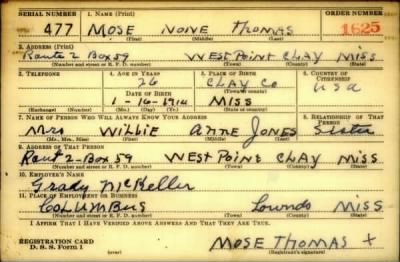 SERIAL NUMBER 1. NAME (Print) ORDER NUMBER
477 MOSE NONE THOMAS 1625
(First) (Middle) (Last)
2. ADDRESS (Print)
Route 2 Box 59 WEST POINT CLAY MISS
(Number and street or R. F. D. number) (Town) (County) (State)
3. TELEPHONE 4. AGE IN YEARS 5. PLACE OF BIRTH 6. COUNTRY OF CITIZENSHIP
26 CLAY CO USA
DATE OF BIRTH (Town or county)
1-16-1914 MISS
(Exchange) (Number) (Mo.) (Day) (Yr.) (State or country)
7. NAME OF PERSON WHO WILL ALWAYS KNOW YOUR ADDRESS 8. RELATIONSHIP OF THAT PERSON
Mrs WILLIE ANNE JONES Sister
(Mr., Mrs., Miss) (First) (Middle) (Last)
9. ADDRESS OF THAT PERSON
Rout 2-Box 59 WEST POINT CLAY MISS.
(Number and street or R. F. D. number) (Town) (County) (State)
10. EMPLOYER'S NAME
Grady McKeller
11. PLACE OF EMPLOYMENT OR BUSINESS
COLUMBUS Lownds MISS
(Number and street or R. F. D. number) (Town) (County) (State)
I AFFIRM THAT I HAVE VERIFIED ABOVE ANSWERS AND THAT THEY ARE TRUE.
REGISTRATION CARD
D. S. S. Form 1 MOSE THOMAS X
(Registrant's signature)